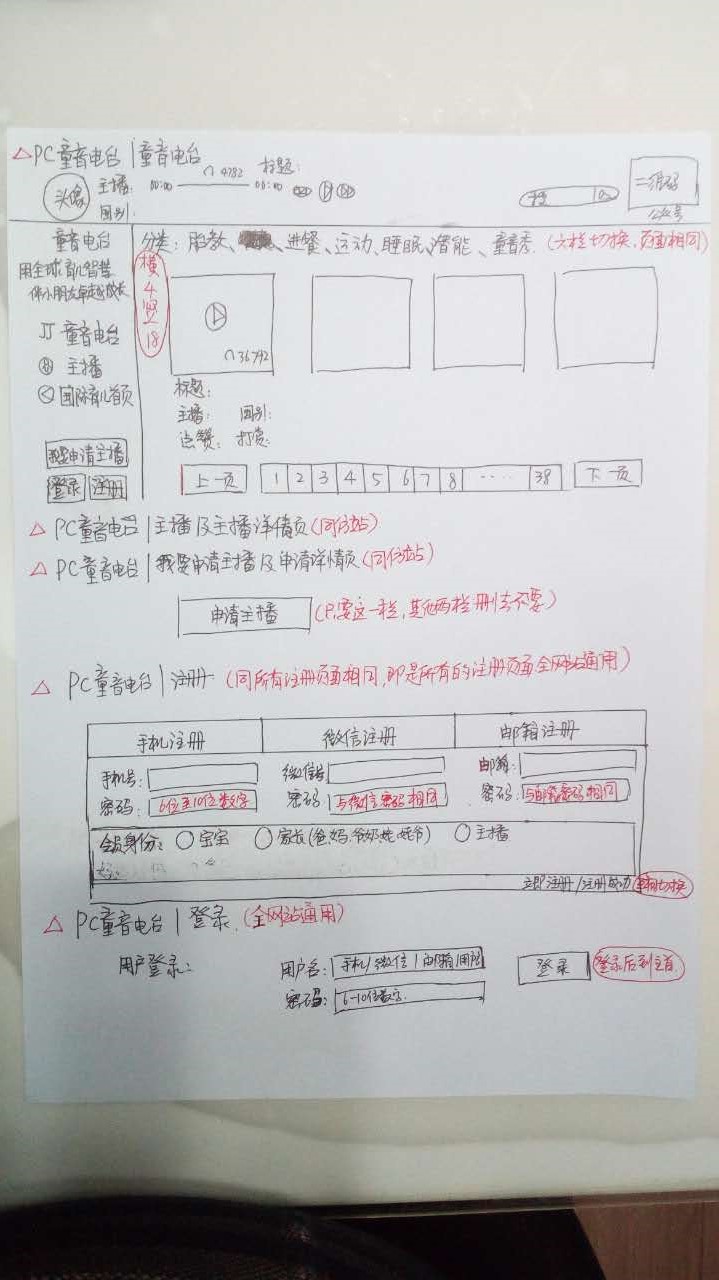 △PC童音电台|童音电台
头像
主播:
国别:
00:00
4782
00:00
标题:
二维码
公众号
童音电台
用全球育儿智慧
伴小朋友卓越成长
童音电台
主播
国际育儿首页
我要申请主播
登录 注册
分类: 胎教、进餐、运动、睡眠、潜能、童音秀.(六栏切换,页面相同)
横4竖18
36792
标题:
主播: 国别:
点赞: 打赏:
上一页 1 2 3 4 5 6 7 8 ···· 38 下一页
△ PC童音电台|主播及主播详情页(同仔站)
△ PC童音电台|我要申请主播及申请详情页(同仔站)
申请主播 (只要这一栏,其他两栏删去不要)
△ PC童音电台|注册 (同所有注册页面相同,即是所有的注册页面全网站通用)
手机注册 微信注册 邮箱注册
手机号: 微信号 邮箱:
密码: 6位至10位数字 密码: 与微信密码相同 密码: 与邮箱密码相同
会员身份: ○宝宝 ○家长(爸.妈.爷.奶.姥.姥爷) ○主播
立即注册/注册成功
△ PC童音电台|登录.(全网站通用)
用户登录: 用户名: 手机/微信/邮箱/用户 登录 登录后到主页.
密码: 6-10位数字.